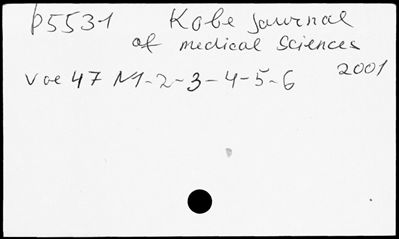 p5531 Kobe journal
of medical Sciences
Vol 47 N1-2-3-4-5-6 2001